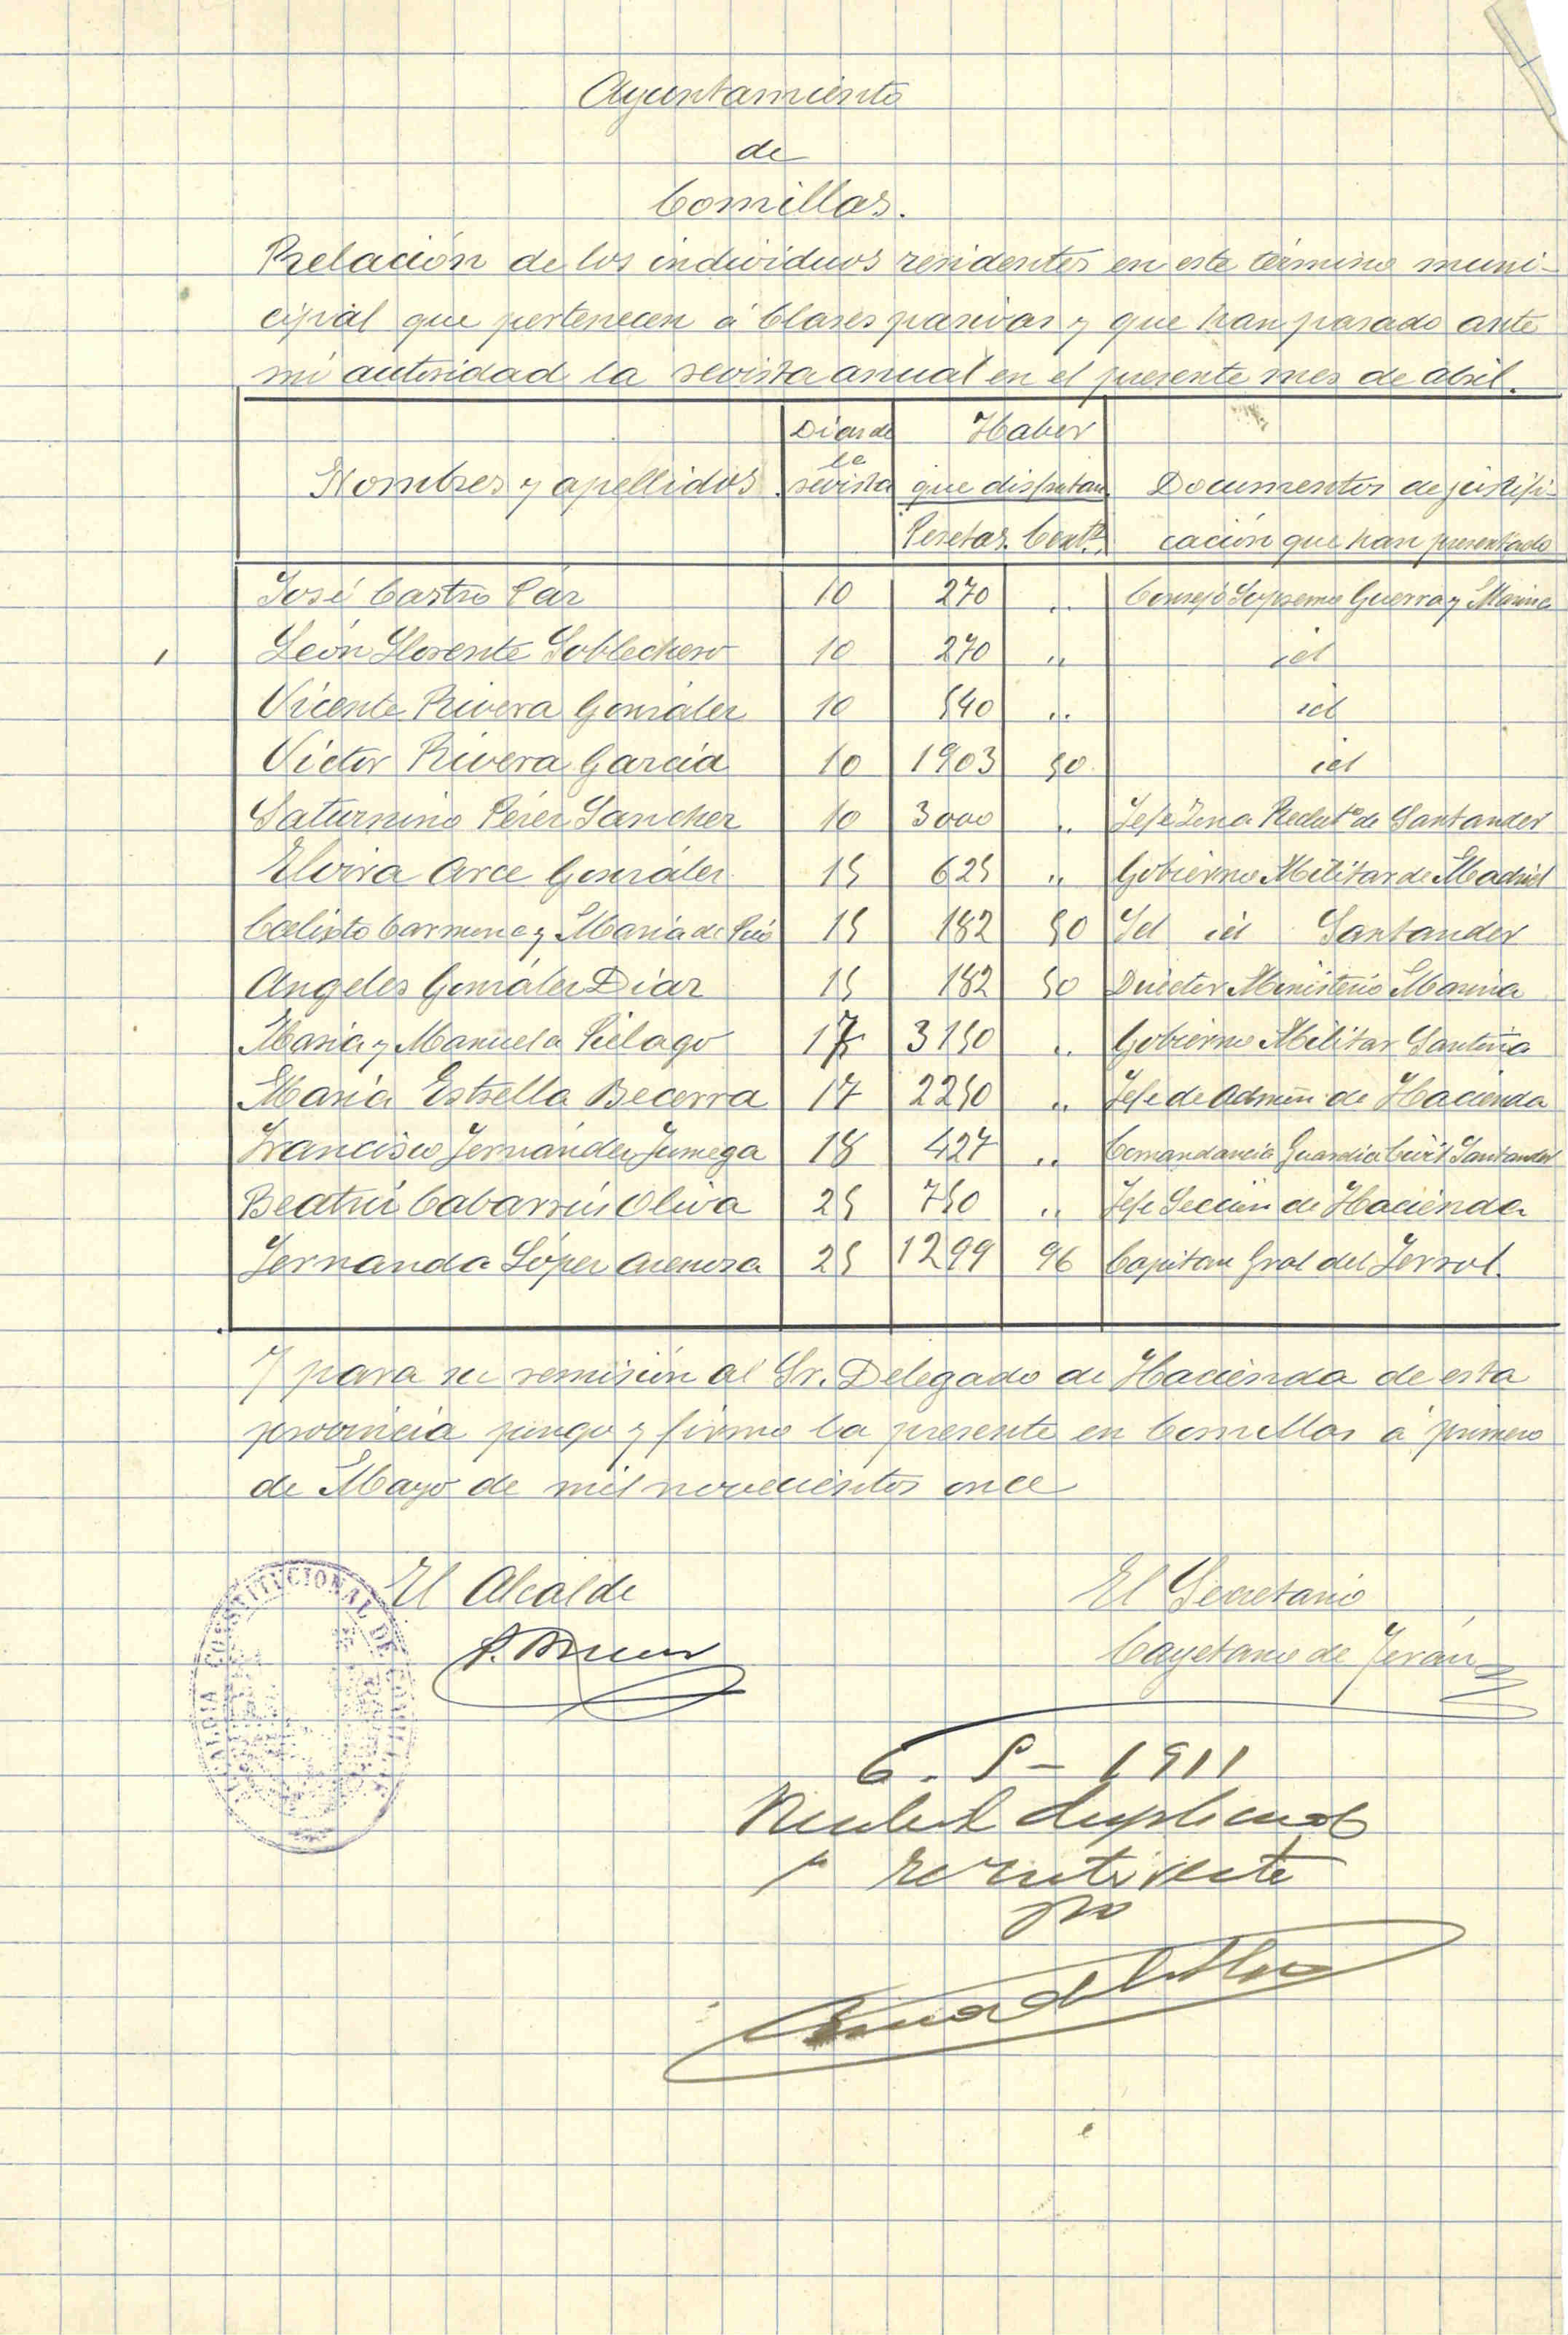 Ayuntamiento
de
Comillas.
Relación de los individuos residentes en este término muni-
cipal que pertenecen á Clases pasivas y que han pasado ante
mi autoridad la revista anual en el presente mes de Abril.
Nombres y apellidos Dias de la revista Haber que disfrutan Pesetas. Cents. Documentos de justifi-
cación que han presentado
José Castro Paz 10 270 ,, Consejo Supremo Guerra y Marina
León Llorente Soblechero 10 270 ,, id
Vicente Rivera González 10 540 ,, id
Victor Rivera García 10 1903 50 id
Saturnino Pérez Sanchez 10 3000 ,, Jefe Zona Reclutº de Santander
Elvira Arce González 15 625 ,, Gobierno Militar de Madrid
Calixto Carmona y María de Pió 15 182 50 Id id Santander
Angeles González Diaz 15 182 50 Director Ministerio Marina
María y Manuela Piélago 17 3150 ,, Gobierno Militar Santoña
María Estrella Becerra 17 2250 ,, Jefe de Admón de Hacienda
Francisco Fernández Jumega 18 427 ,, Comandancia Guardia Civil Santander
Beatriz Cabarrús Oliva 25 750 ,, Jefe Sección de Hacienda
Fernanda López Arenosa 25 1299 96 Capitan Gral del Ferrol.
Y para su remisión al Sr. Delegado de Hacienda de esta
provincia pongo y firmo la presente en Comillas á primero
de Mayo de mil novecientos once
El Alcalde El Secretario
Cayetano de Terán
ALCALDIA CONSTITUCIONAL DE COMILLAS
6 - 5 - 1911
Recibí duplicado